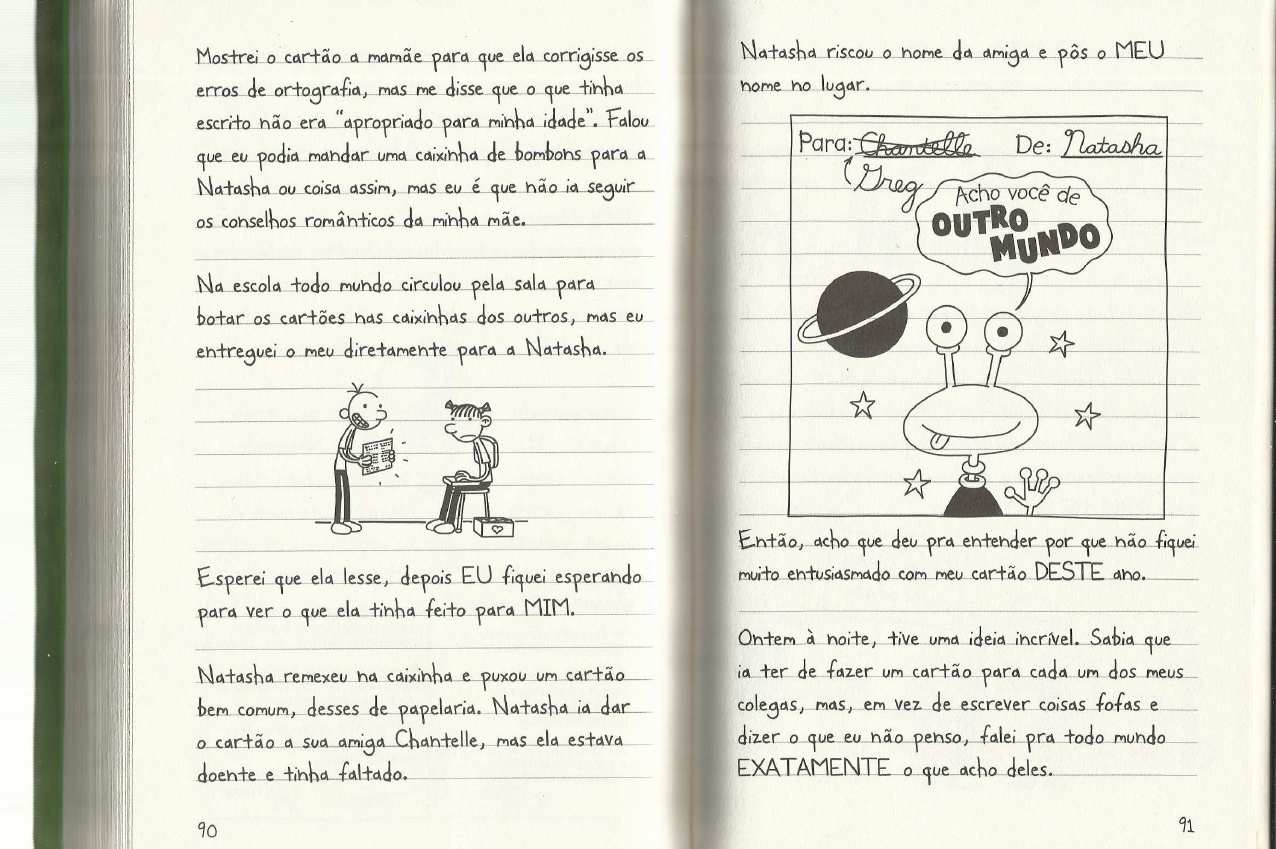 Mostrei o cartão a mamãe para que ela corrigisse os
erros de ortografia, mas me disse que o que tinha
escrito não era "apropriado para minha idade". Falou
que eu podia mandar uma caixinha de bombons para a
Natasha ou coisa assim, mas eu é que não ia seguir
os conselhos românticos da minha mãe.
Na escola todo mundo circulou pela sala para
botar os cartões nas caixinhas dos outros, mas eu
entreguei o meu diretamente para a Natasha.
Esperei que ela lesse, depois EU fiquei esperando
para ver o que ela tinha feito para MIM.
Natasha remexeu na caixinha e puxou um cartão
bem comum, desses de papelaria. Natasha ia dar
o cartão a sua amiga Chantelle, mas ela estava
doente e tinha faltado.
90
Natasha riscou o nome da amiga e pôs o MEU
nome no lugar.
Para: Chantelle De: Natasha
Greg
Acho você de
OUTRO
MUNDO
Então, acho que deu pra entender por que não fiquei
muito entusiasmado com meu cartão DESTE ano.
Ontem à noite, tive uma ideia incrível. Sabia que
ia ter de fazer um cartão para cada um dos meus
colegas, mas, em vez de escrever coisas fofas e
dizer o que eu não penso, falei pra todo mundo
EXATAMENTE o que acho deles.
91